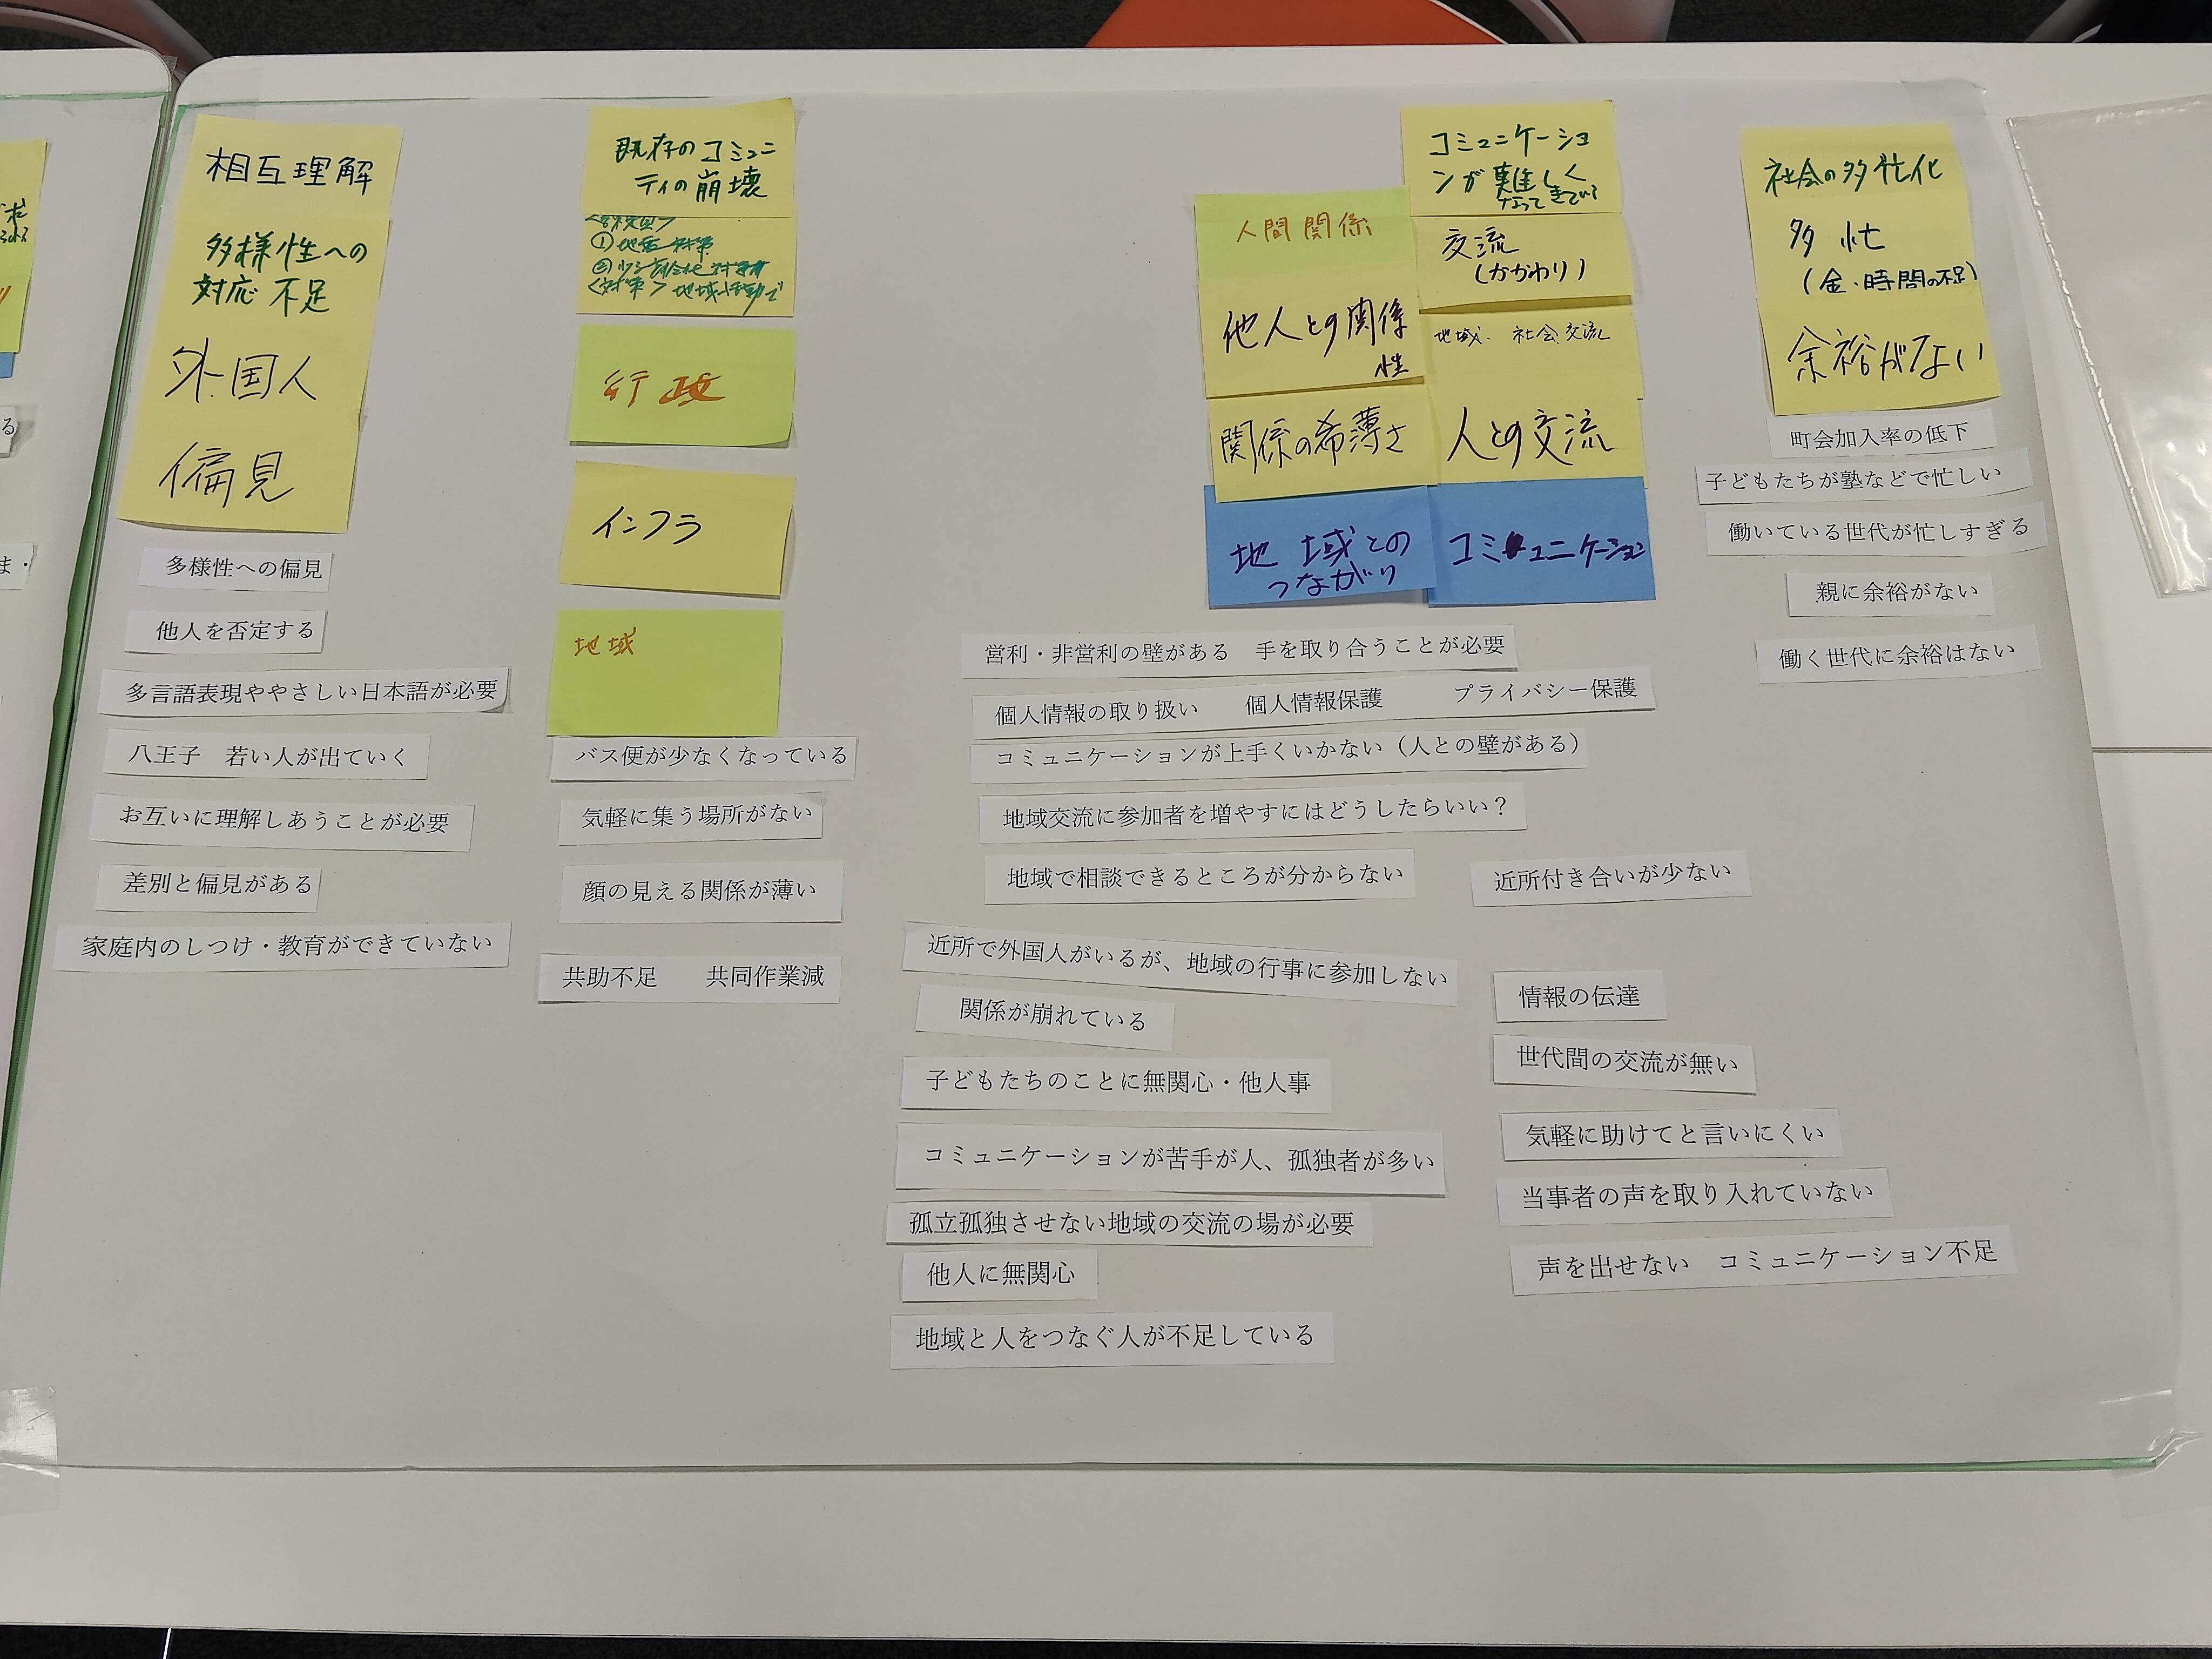 相互理解
多様性への
対応不足
外国人
偏見
多様性への偏見
他人を否定する
多言語表現ややさしい日本語が必要
八王子　若い人が出ていく
お互いに理解しあうことが必要
差別と偏見がある
家庭内のしつけ・教育ができていない
既存のコミュニ
ティの崩壊
①地震対策
<対策>地域活動で
行政
インフラ
地域
バス便が少なくなっている
気軽に集う場所がない
顔の見える関係が薄い
共助不足　　共同作業減
人間関係
他人との関係
性
関係の希薄さ
地域との
つながり
コミュニケーショ
ンが難しく
なってきている
交流
(かかわり)
地域・社会交流
人との交流
コミュニケーション
営利・非営利の壁がある　手を取り合うことが必要
個人情報の取り扱い　　個人情報保護　　　プライバシー保護
コミュニケーションが上手くいかない（人との壁がある）
地域交流に参加者を増やすにはどうしたらいい？
地域で相談できるところが分からない
近所で外国人がいるが、地域の行事に参加しない
関係が崩れている
子どもたちのことに無関心・他人事
コミュニケーションが苦手が人、孤独者が多い
孤立孤独させない地域の交流の場が必要
他人に無関心
地域と人をつなぐ人が不足している
近所付き合いが少ない
情報の伝達
世代間の交流が無い
気軽に助けてと言いにくい
当事者の声を取り入れていない
声を出せない　コミュニケーション不足
社会の多忙化
多忙
(金・時間の不足)
余裕がない
町会加入率の低下
子どもたちが塾などで忙しい
働いている世代が忙しすぎる
親に余裕がない
働く世代に余裕はない